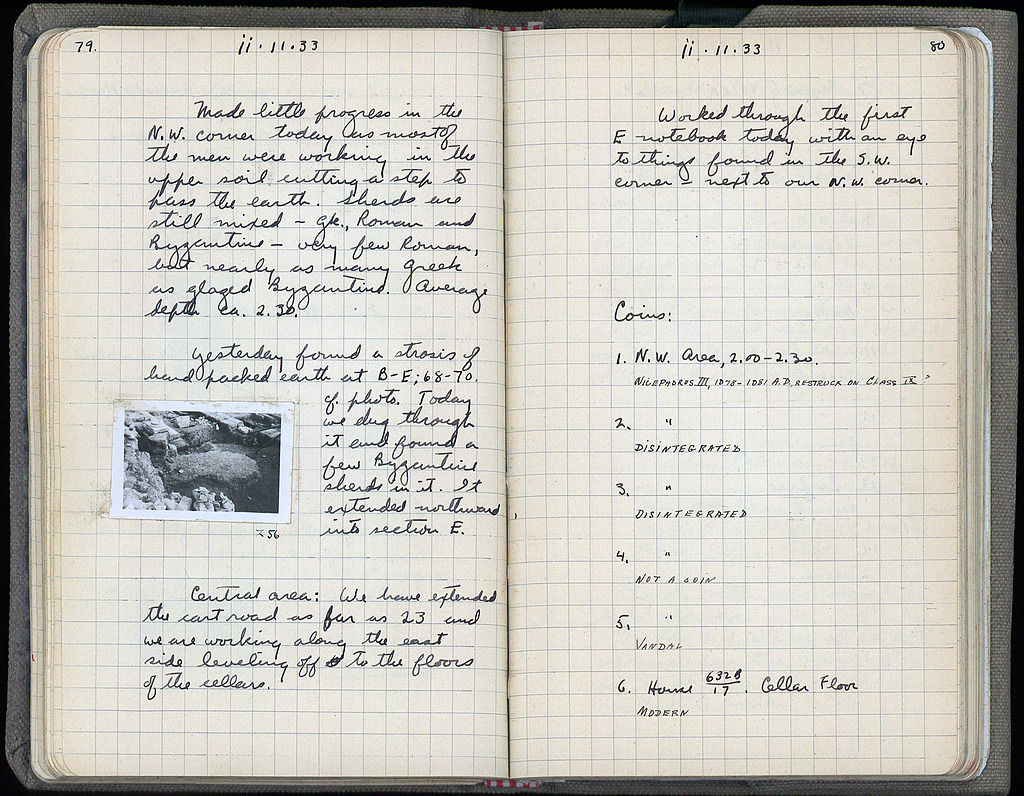 79.
ii · 11 · 33
Made little progress in the
N.W. corner today as most of
the men were working in the
upper soil cutting a step to
pass the earth. Sherds are
still mixed – Gk., Roman and
Byzantine – very few Roman,
but nearly as many Greek
as glazed Byzantine. Average
depth ca. 2.30.
Yesterday found a strosis of
hard packed earth at B-E; 68-70.
cf. photo. Today
we dug through
it and found a
few Byzantine
sherds in it. It
extended northward
into section E.
56
Central area: We have extended
the cart road as far as 23 and
we are working along the east
side leveling off to the floors
of the cellars.
ii · 11 · 33
80
Worked through the first
E notebook today with an eye
to things found in the S.W.
corner – next to our N.W. corner.
Coins:
1. N.W. Area, 2.00-2.30.
NICEPHOROS III, 1078-1081 A.D, RESTRUCK ON CLASS IX ?
2. "
DISINTEGRATED
3. "
DISINTEGRATED
4. "
NOT A COIN
5. "
VANDAL
6. House 632B/17. Cellar Floor
MODERN